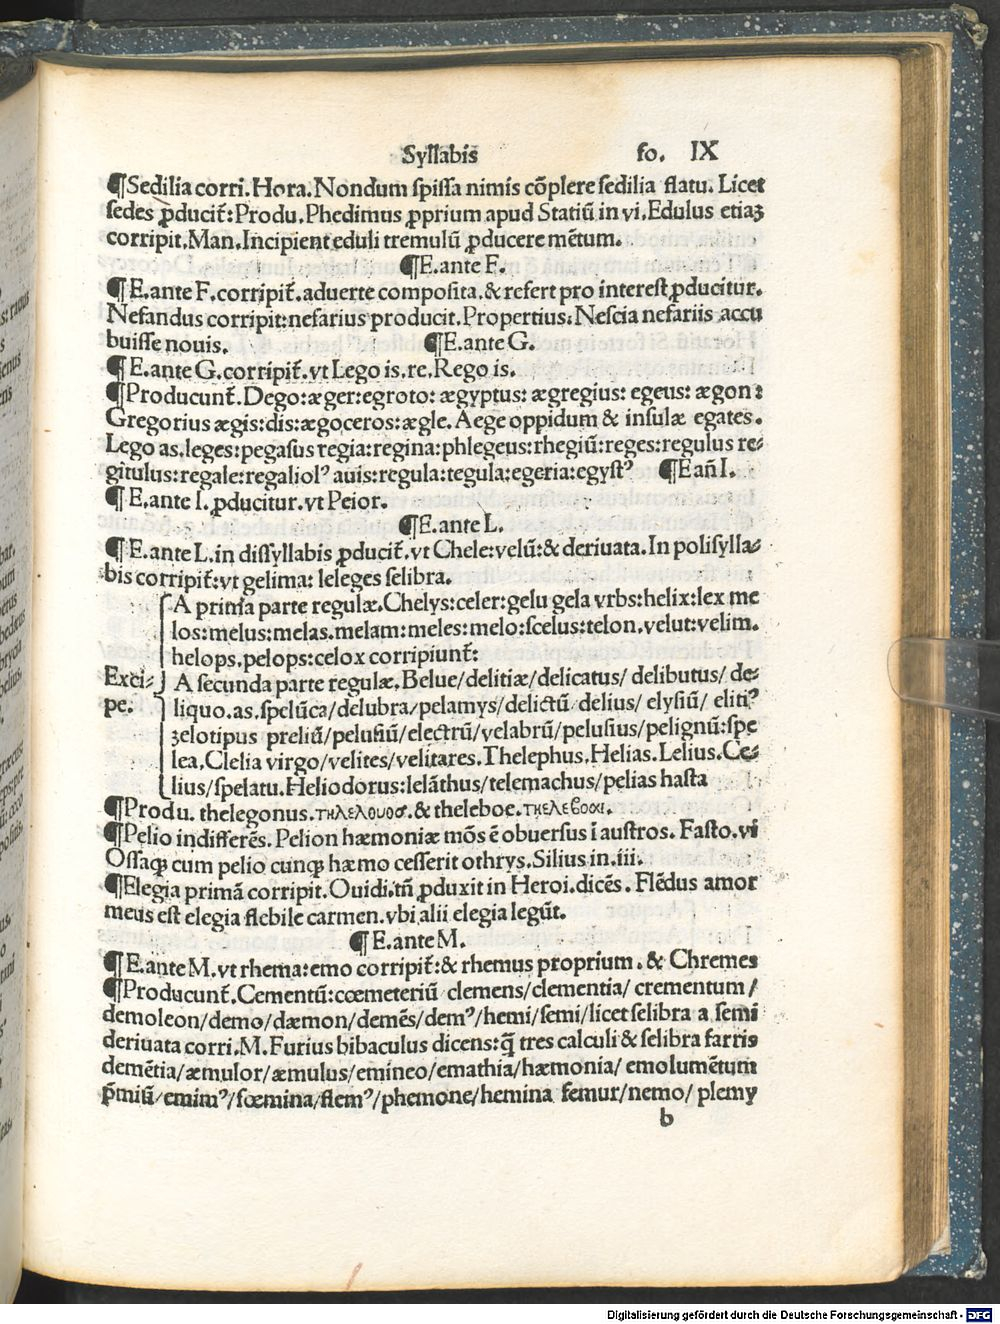 Syllabis fo. IX
¶Sedilia corri. Hora. Nondum spissa nimis cõplere sedilia flatu. Licet
sedes ꝓducit᷑: Produ. Phedimus ꝓprium apud Statiũ in vi. Edulus etiaꝫ
corripit. Man. Incipient eduli tremulũ ꝓducere mẽtum.
¶E. ante F.
¶ E. ante F. corripit᷑. aduerte composita. & refert pro interest ꝓducitur.
Nefandus corripit: nefarius producit. Propertius: Nescia nefariis accu
buisse nouis. ¶E. ante G.
¶ E. ante G. corripit᷑. vt Lego is. re. Rego is.
¶Producunt᷑. Dego: æger: egroto: ægyptus: ægregius: egeus: ægon:
Gregorius ægis: dis: ægoceros: ægle. Aege oppidum & insulæ egates.
Lego as. leges: pegasus regia: regina: phlegeus: rhegiũ: reges: regulus re⸗
gitulus: regale: regaliolꝰ auis: regula: tegula: egeria: egystꝰ ¶E añ I.
¶ E. ante I. ꝓducitur. vt Peior.
¶E. ante L.
¶ E. ante L. in dissyllabis ꝓducit᷑. vt Chele: velũ: & deriuata. In polisylla⸗
bis corripit᷑: vt gelima: leleges selibra.
A prima parte regulæ. Chelys: celer: gelu gela vrbs: helix: lex me
los: melus: melas. melam: meles: melo: scelus: telon. velut: velim.
helops. pelops: celox corripiunt᷑:
Exci⸗ A secunda parte regulæ. Belue/ delitiæ/ delicatus/ delibutus/ de⸗
pe. liquo. as. spelũca/ delubra/ pelamys/ delictũ delius/ elysiũ/ elitiꝰ
zelotipus preliũ/ pelusiũ/ electrũ/ velabrũ/ pelusius/ pelignũ: spe
lea. Clelia virgo/ velites/ velitares. Thelephus. Helias. Lelius. Ce⸗
lius/ spelatu. Heliodorus: lelãthus/ telemachus/ pelias hasta
¶Produ. thelegonus. & theleboe.
¶Pelio indifferẽs. Pelion hæmoniæ mõs ẽ obuersus ĩ austros. Fasto. vi
Ossaqꝫ cum pelio cunqꝫ hæmo cesserit othrys. Silius in. iii.
¶Elegia primã corripit. Ouidi. tñ ꝓduxit in Heroi. dicẽs. Flẽdus amor
meus est elegia flebile carmen. vbi alii elegia legũt.
¶ E. ante M.
¶ E. ante M. vt rhema: emo corripit᷑: & rhemus proprium. & Chremes
¶Producunt᷑. Cementũ: cœmeteriũ clemens/ clementia/ crementum/
demoleon/ demo/ dæmon/ demẽs/ demꝰ/ hemi/ semi/ licet selibra a semi
deriuata corri. M. Furius bibaculus dicens: q̃ tres calculi & selibra farris
demẽtia/ æmulor/ æmulus/ emineo/ emathia/ hæmonia/ emolumẽtum
p̃miũ/ emimꝰ/ fœmina/ flemꝰ/ phemone/ hemina femur/ nemo/ plemy
b
Digitalisierung gefördert durch die Deutsche Forschungsgemeinschaft - DFG